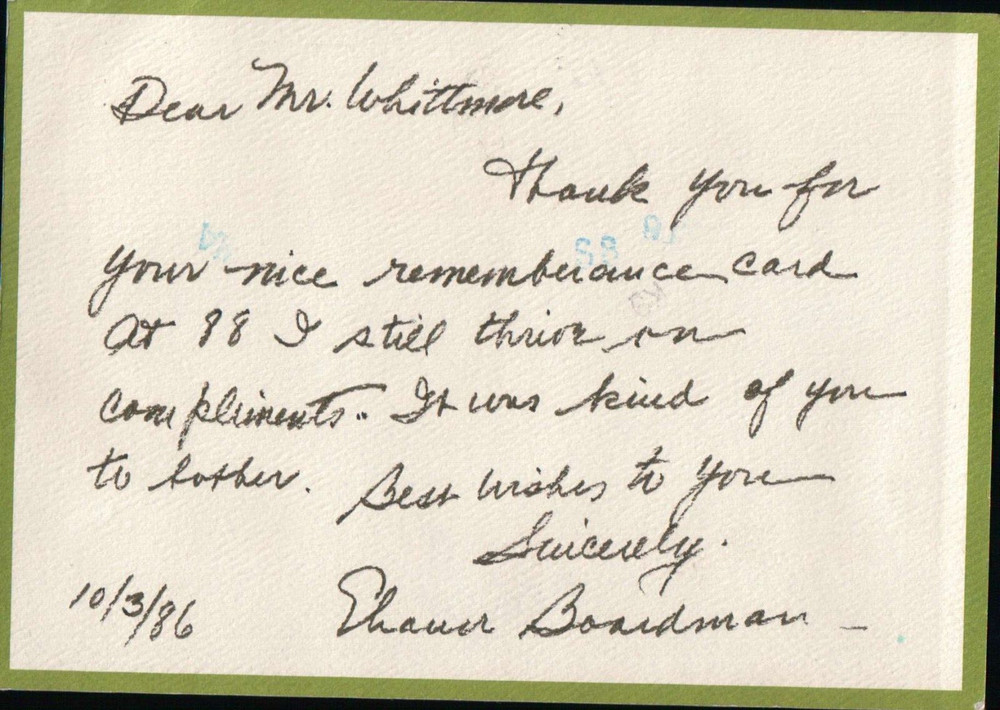 Dear Mr. Whittmore,
Thank you for
your nice rememberance card
At 88 I still thrive on
compliments. It was kind of you
to bother. Best wishes to you
Sincerely.
10/3/86 Eleanor Boardman